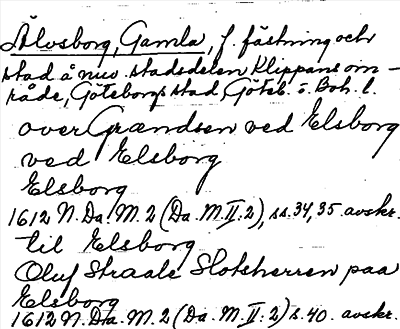 Älvsborg, Gamla, f. fästning och
stad å nuv. stadsdelen Klippans om-
råde, Göteborgs stad, Göteb. o. Boh. l.
over Grændsen ved Elsborg
ved Elsborg
Elsborg
1612 N. Da. M. 2 (Da. M. II: 2), ss. 34, 35. avskr.
til Elsborg
Oluf Straale Slotsherren paa
Elsborg
1612 N. Da. M. 2 (Da. M. II: 2) s. 40. avskr.